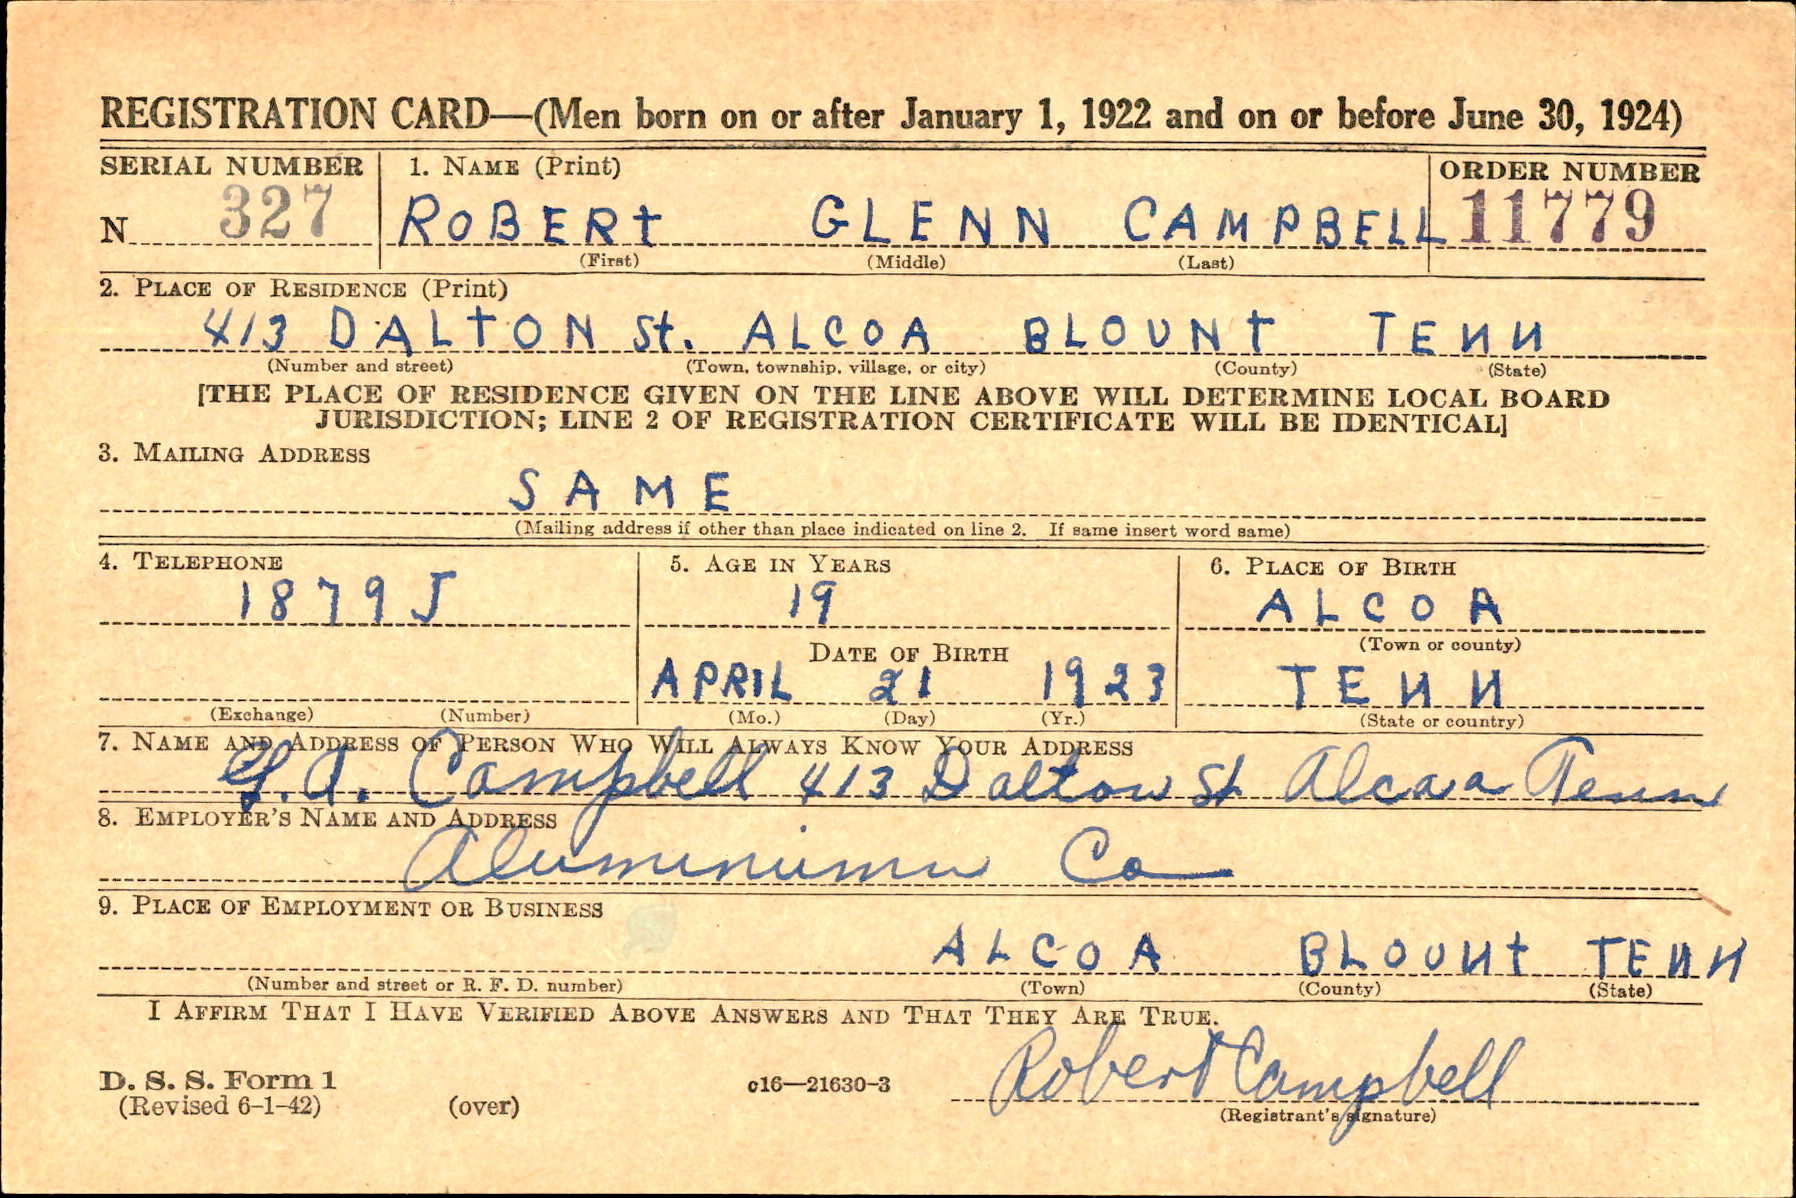 REGISTRATION CARD—(Men born on or after January 1, 1922 and on or before June 30, 1924)
SERIAL NUMBER 1. NAME (Print) ORDER NUMBER
N 327 ROBERT GLENN CAMPBELL 11779
(First) (Middle) (Last)
2. PLACE OF RESIDENCE (Print)
413 DALTON St. ALCOA BLOUNT TENN
(Number and street) (Town, township, village, or city) (County) (State)
[THE PLACE OF RESIDENCE GIVEN ON THE LINE ABOVE WILL DETERMINE LOCAL BOARD
JURISDICTION; LINE 2 OF REGISTRATION CERTIFICATE WILL BE IDENTICAL]
3. MAILING ADDRESS
SAME
(Mailing address if other than place indicated on line 2. If same insert word same)
4. TELEPHONE 5. AGE IN YEARS 6. PLACE OF BIRTH
1879J 19 ALCOA
(Town or county)
DATE OF BIRTH
APRIL 21 1923 TENN
(Exchange) (Number) (Mo.) (Day) (Yr.) (State or country)
7. NAME AND ADDRESS OF PERSON WHO WILL ALWAYS KNOW YOUR ADDRESS
G. A. Campbell 413 Dalton St Alcoa Tenn
8. EMPLOYER'S NAME AND ADDRESS
Aluminum Co
9. PLACE OF EMPLOYMENT OR BUSINESS
ALCOA BLOUNT TENN
(Number and street or R. F. D. number) (Town) (County) (State)
I AFFIRM THAT I HAVE VERIFIED ABOVE ANSWERS AND THAT THEY ARE TRUE.
Robert Campbell
D. S. S. Form 1 c16—21630-3
(Revised 6-1-42) (over) (Registrant's signature)